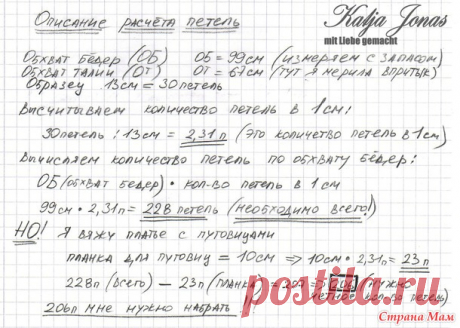 Описание расчёта петель
Katja Jonas
mit Liebe gemacht
Обхват бёдер (ОБ) ОБ = 99см (измеряем с запасом)
Обхват талии (ОТ) ОТ = 67см (тут я мерила впритык)
Образец 13см = 30 петель
Высчитываем количество петель в 1см:
30 петель : 13см = 2,31 п (это количество петель в 1см)
Вычисляем количество петель по обхвату бёдер:
ОБ (обхват бедер) · кол-во петель в 1см
99см · 2,31п = 228 петель (необходимо всего!)
НО! Я вяжу платье с пуговицами
планка для пуговиц = 10см ⇒ 10см · 2,31п = 23п
228п (всего) – 23п (планка) = 205 206 (нужно
четное кол-во петель)
206п мне нужно набрать!
postila.ru
Страна Мам